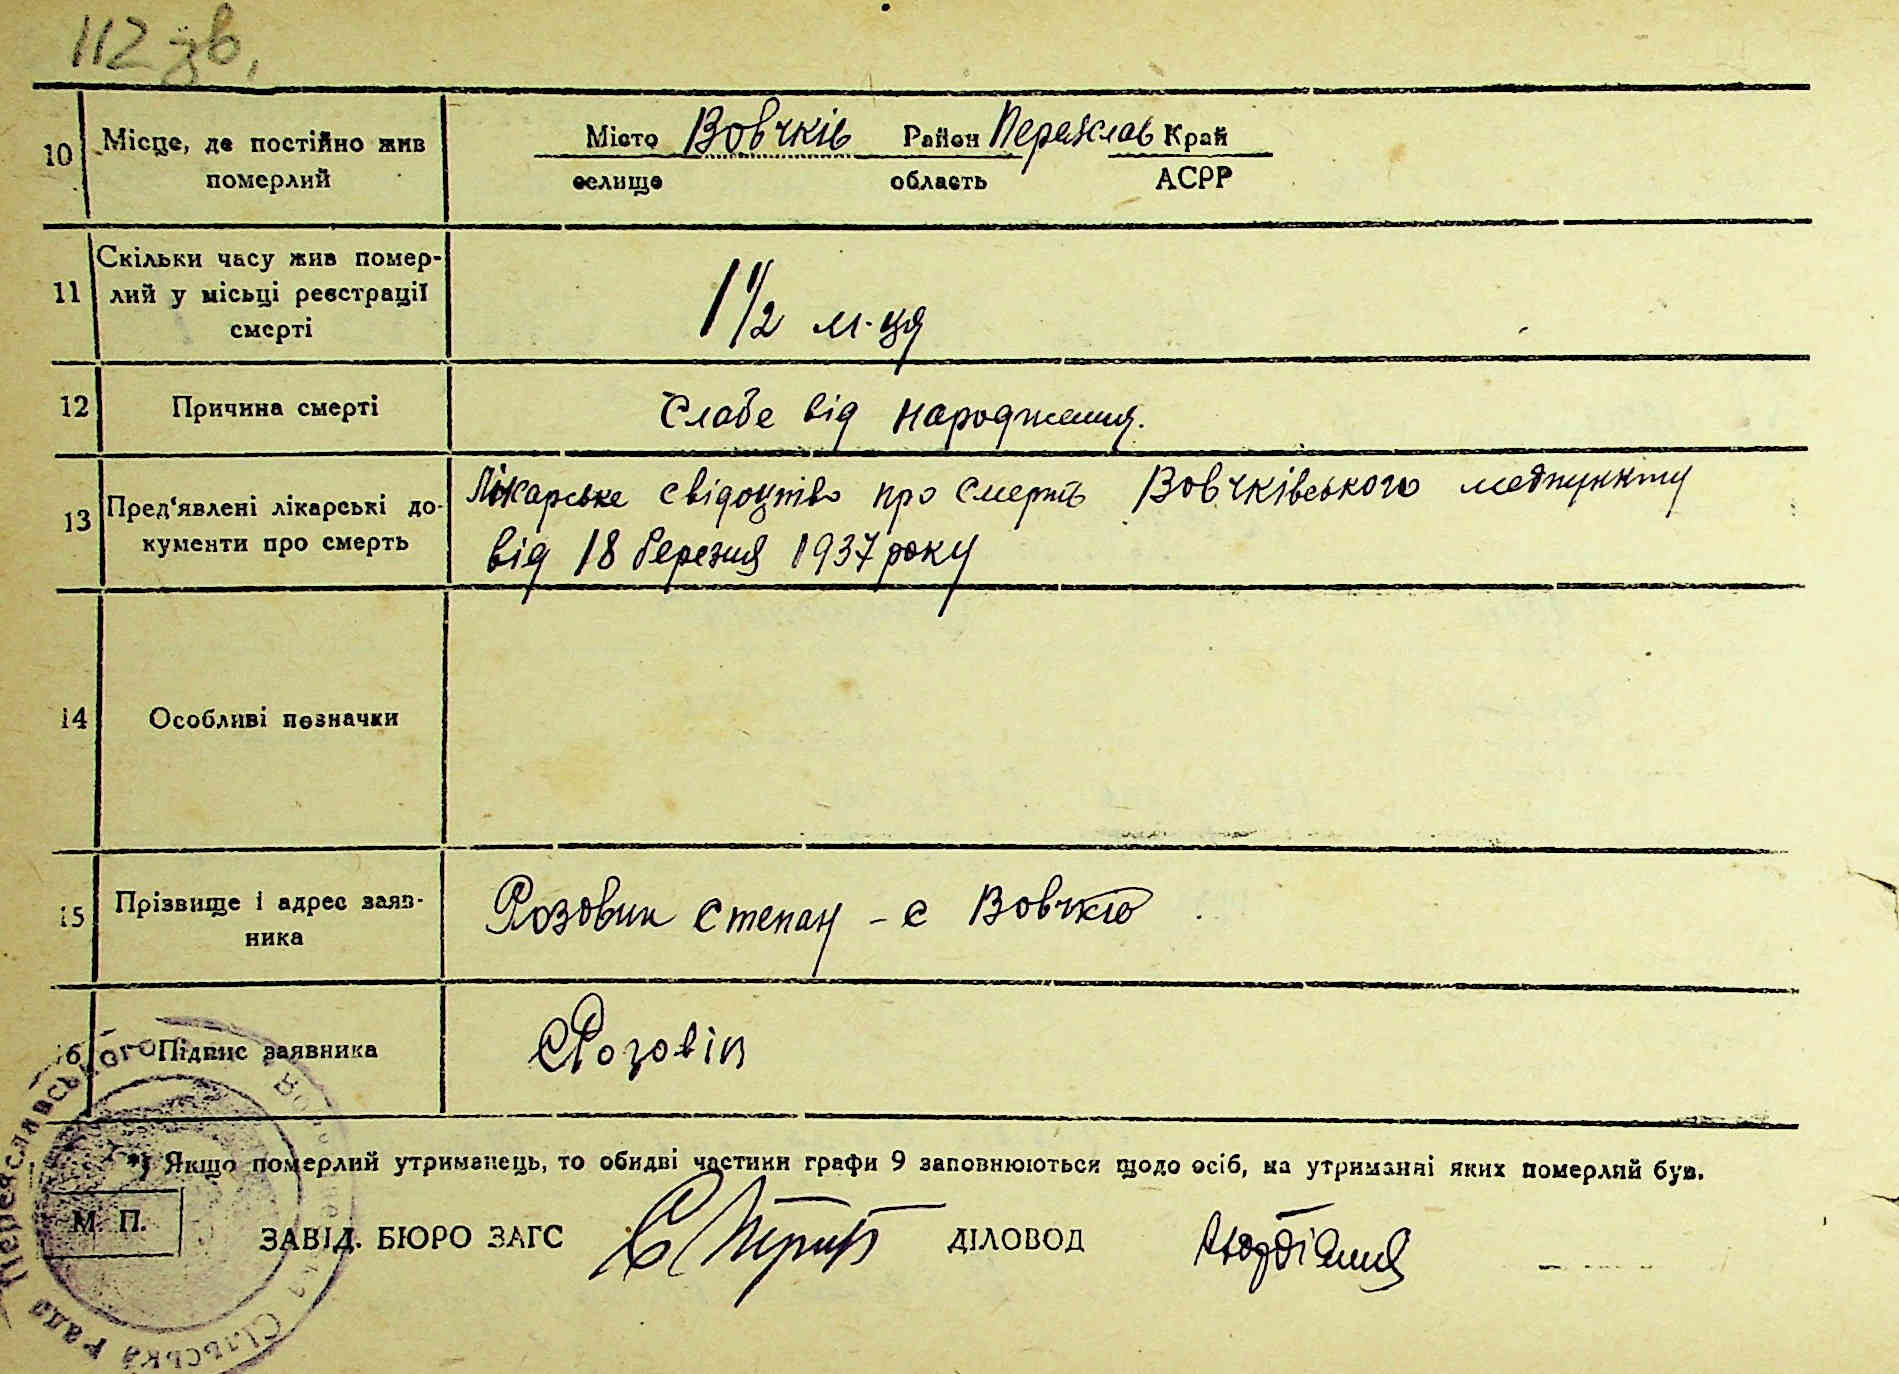 112 зв.
10 Місце, де постійно жив померлий
Місто Вовчків Район Переяслав Край
селище область АСРР
11 Скільки часу жив помер-
лий у місьці реєстрації
смерті
1 1/2 м-ця
12 Причина смерті
Слабе від народження.
13 Пред'явлені лікарські до-
кументи про смерть
Лікарське свідоцтво про смерть Вовчківського медпункту
від 18 березня 1937 року
14 Особливі позначки
15 Прізвище і адрес заяв-
ника
Розовик Степан - с Вовчків
16 Підпис заявника
СРозовік
*) Якщо померлий утриманець, то обидві частини графи 9 заповнюються щодо осіб, на утриманні яких померлий був.
М. П.
ЗАВІД. БЮРО ЗАГС
ДІЛОВОД
Переяславського
Сільська Рада